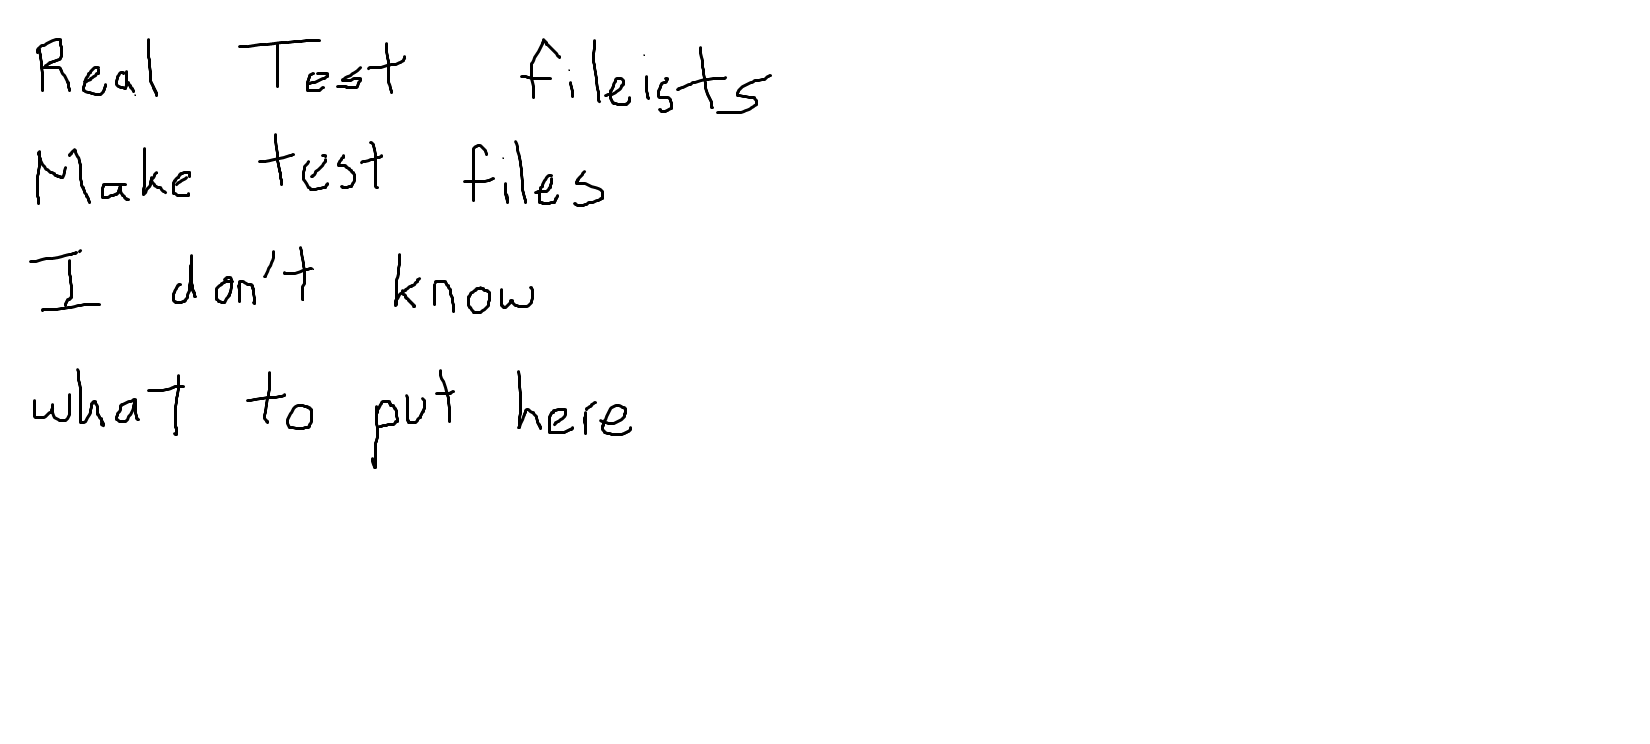 Real Test fileists
Make test files
I don't know
what to put here